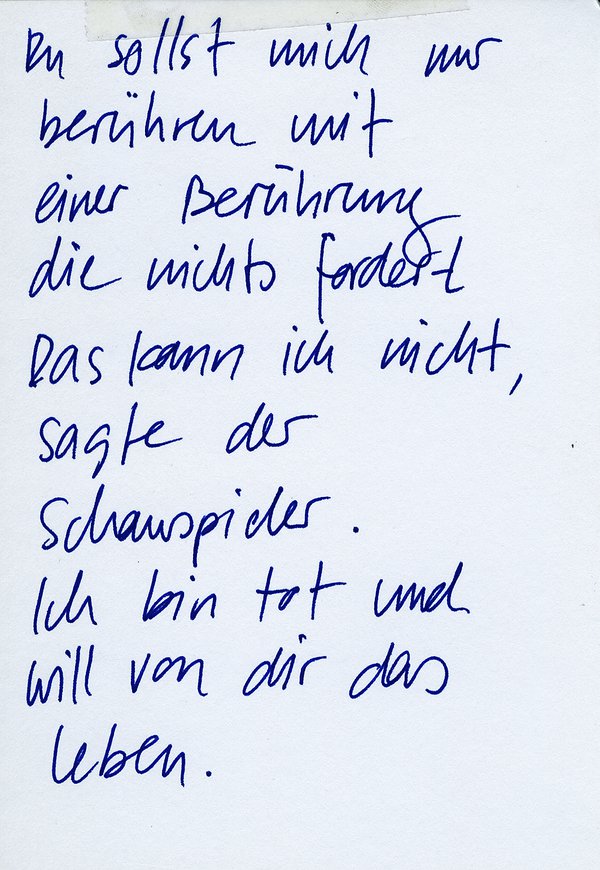 Du sollst mich nur
berühren mit
einer Berührung
die nichts fordert
Das kann ich nicht,
sagte der
Schauspieler.
Ich bin tot und
will von dir das
leben.